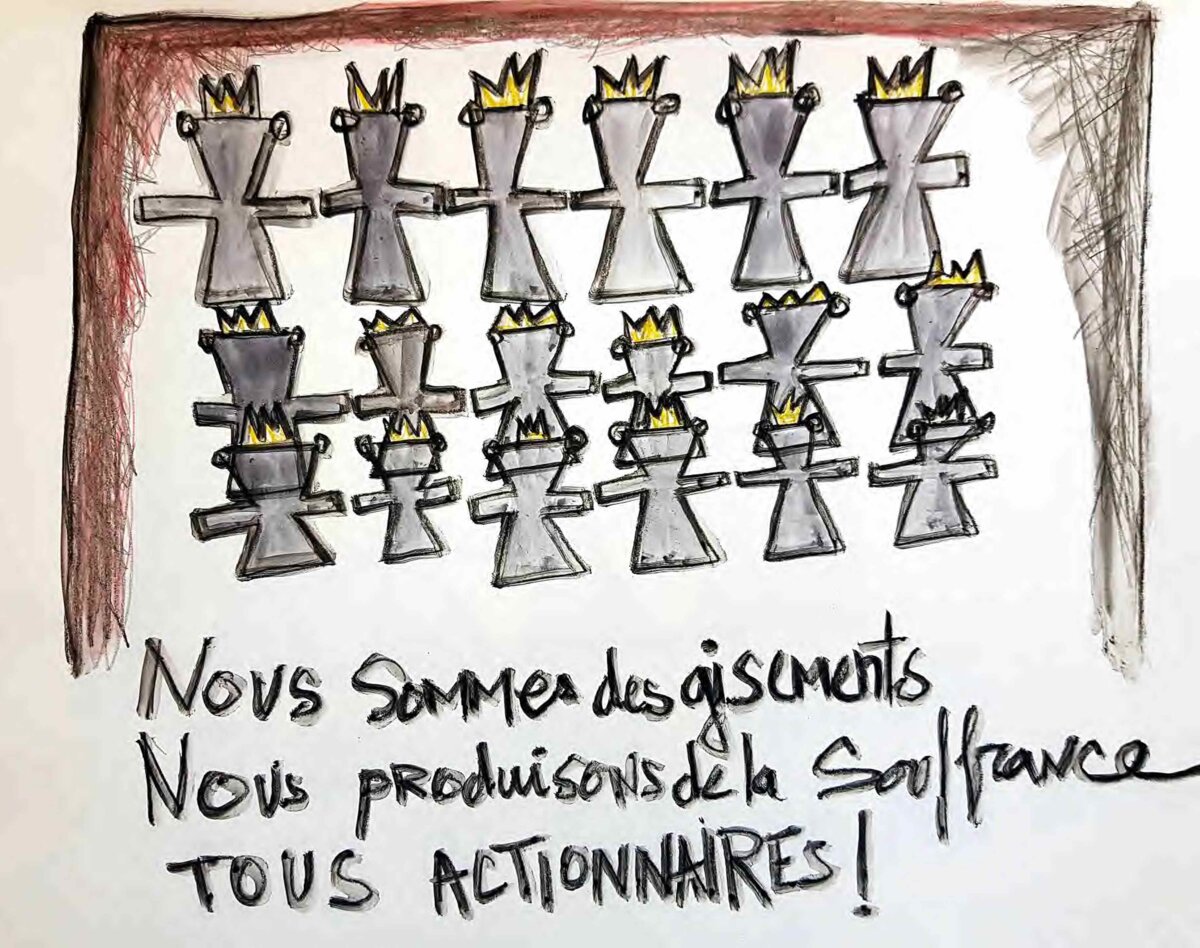 Nous sommes des gisements
Nous produisons de la souffrance
TOUS ACTIONNAIRES !